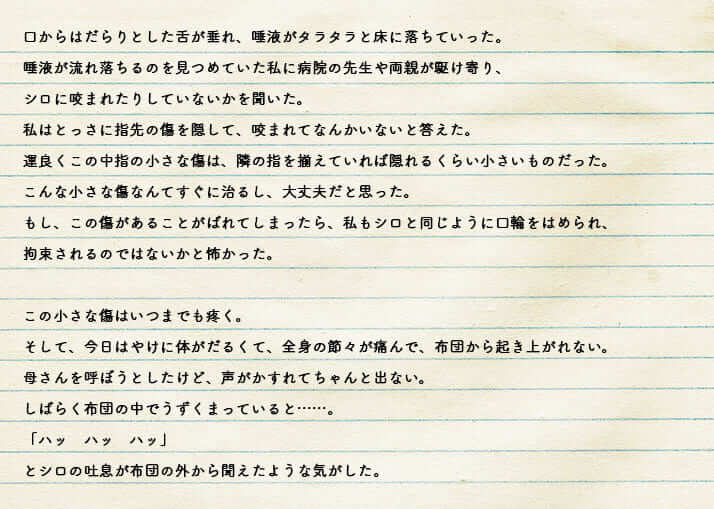 口からはだらりとした舌が垂れ、唾液がタラタラと床に落ちていった。
唾液が流れ落ちるのを見つめていた私に病院の先生や両親が駆け寄り、
シロに咬まれたりしていないかを聞いた。
私はとっさに指先の傷を隠して、咬まれてなんかいないと答えた。
運良くこの中指の小さな傷は、隣の指を揃えていれば隠れるくらい小さいものだった。
こんな小さな傷なんてすぐに治るし、大丈夫だと思った。
もし、この傷があることがばれてしまったら、私もシロと同じように口輪をはめられ、
拘束されるのではないかと怖かった。
この小さな傷はいつまでも疼く。
そして、今日はやけに体がだるくて、全身の節々が痛んで、布団から起き上がれない。
母さんを呼ぼうとしたけど、声がかすれてちゃんと出ない。
しばらく布団の中でうずくまっていると……。
「ハッ　ハッ　ハッ」
とシロの吐息が布団の外から聞えたような気がした。